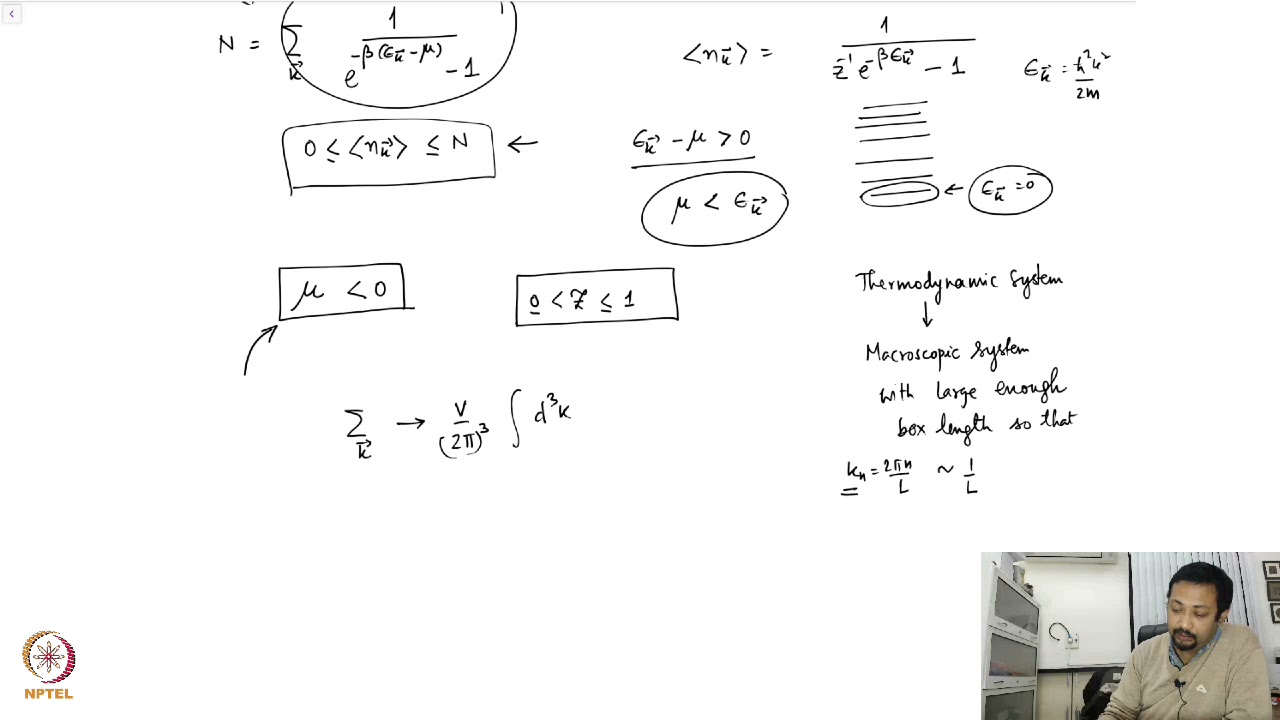 N = Σ_k⃗ 1 / (e^{-β(ϵ_k⃗ - μ)} - 1)
<n_k⃗> = 1 / (z^{-1} e^{-βϵ_k⃗} - 1)
ϵ_k⃗ = ħ²k² / 2m
0 ≤ <n_k⃗> ≤ N ←
ϵ_k⃗ - μ > 0
μ < ϵ_k⃗
← ϵ_k⃗ = 0
μ < 0
0 < Z ≤ 1
Thermodynamic system
↓
Macroscopic system
with large enough
box length so that
k_n = 2πn / L ~ 1 / L
Σ_k⃗ → V / (2π)³ ∫ d³k
NPTEL